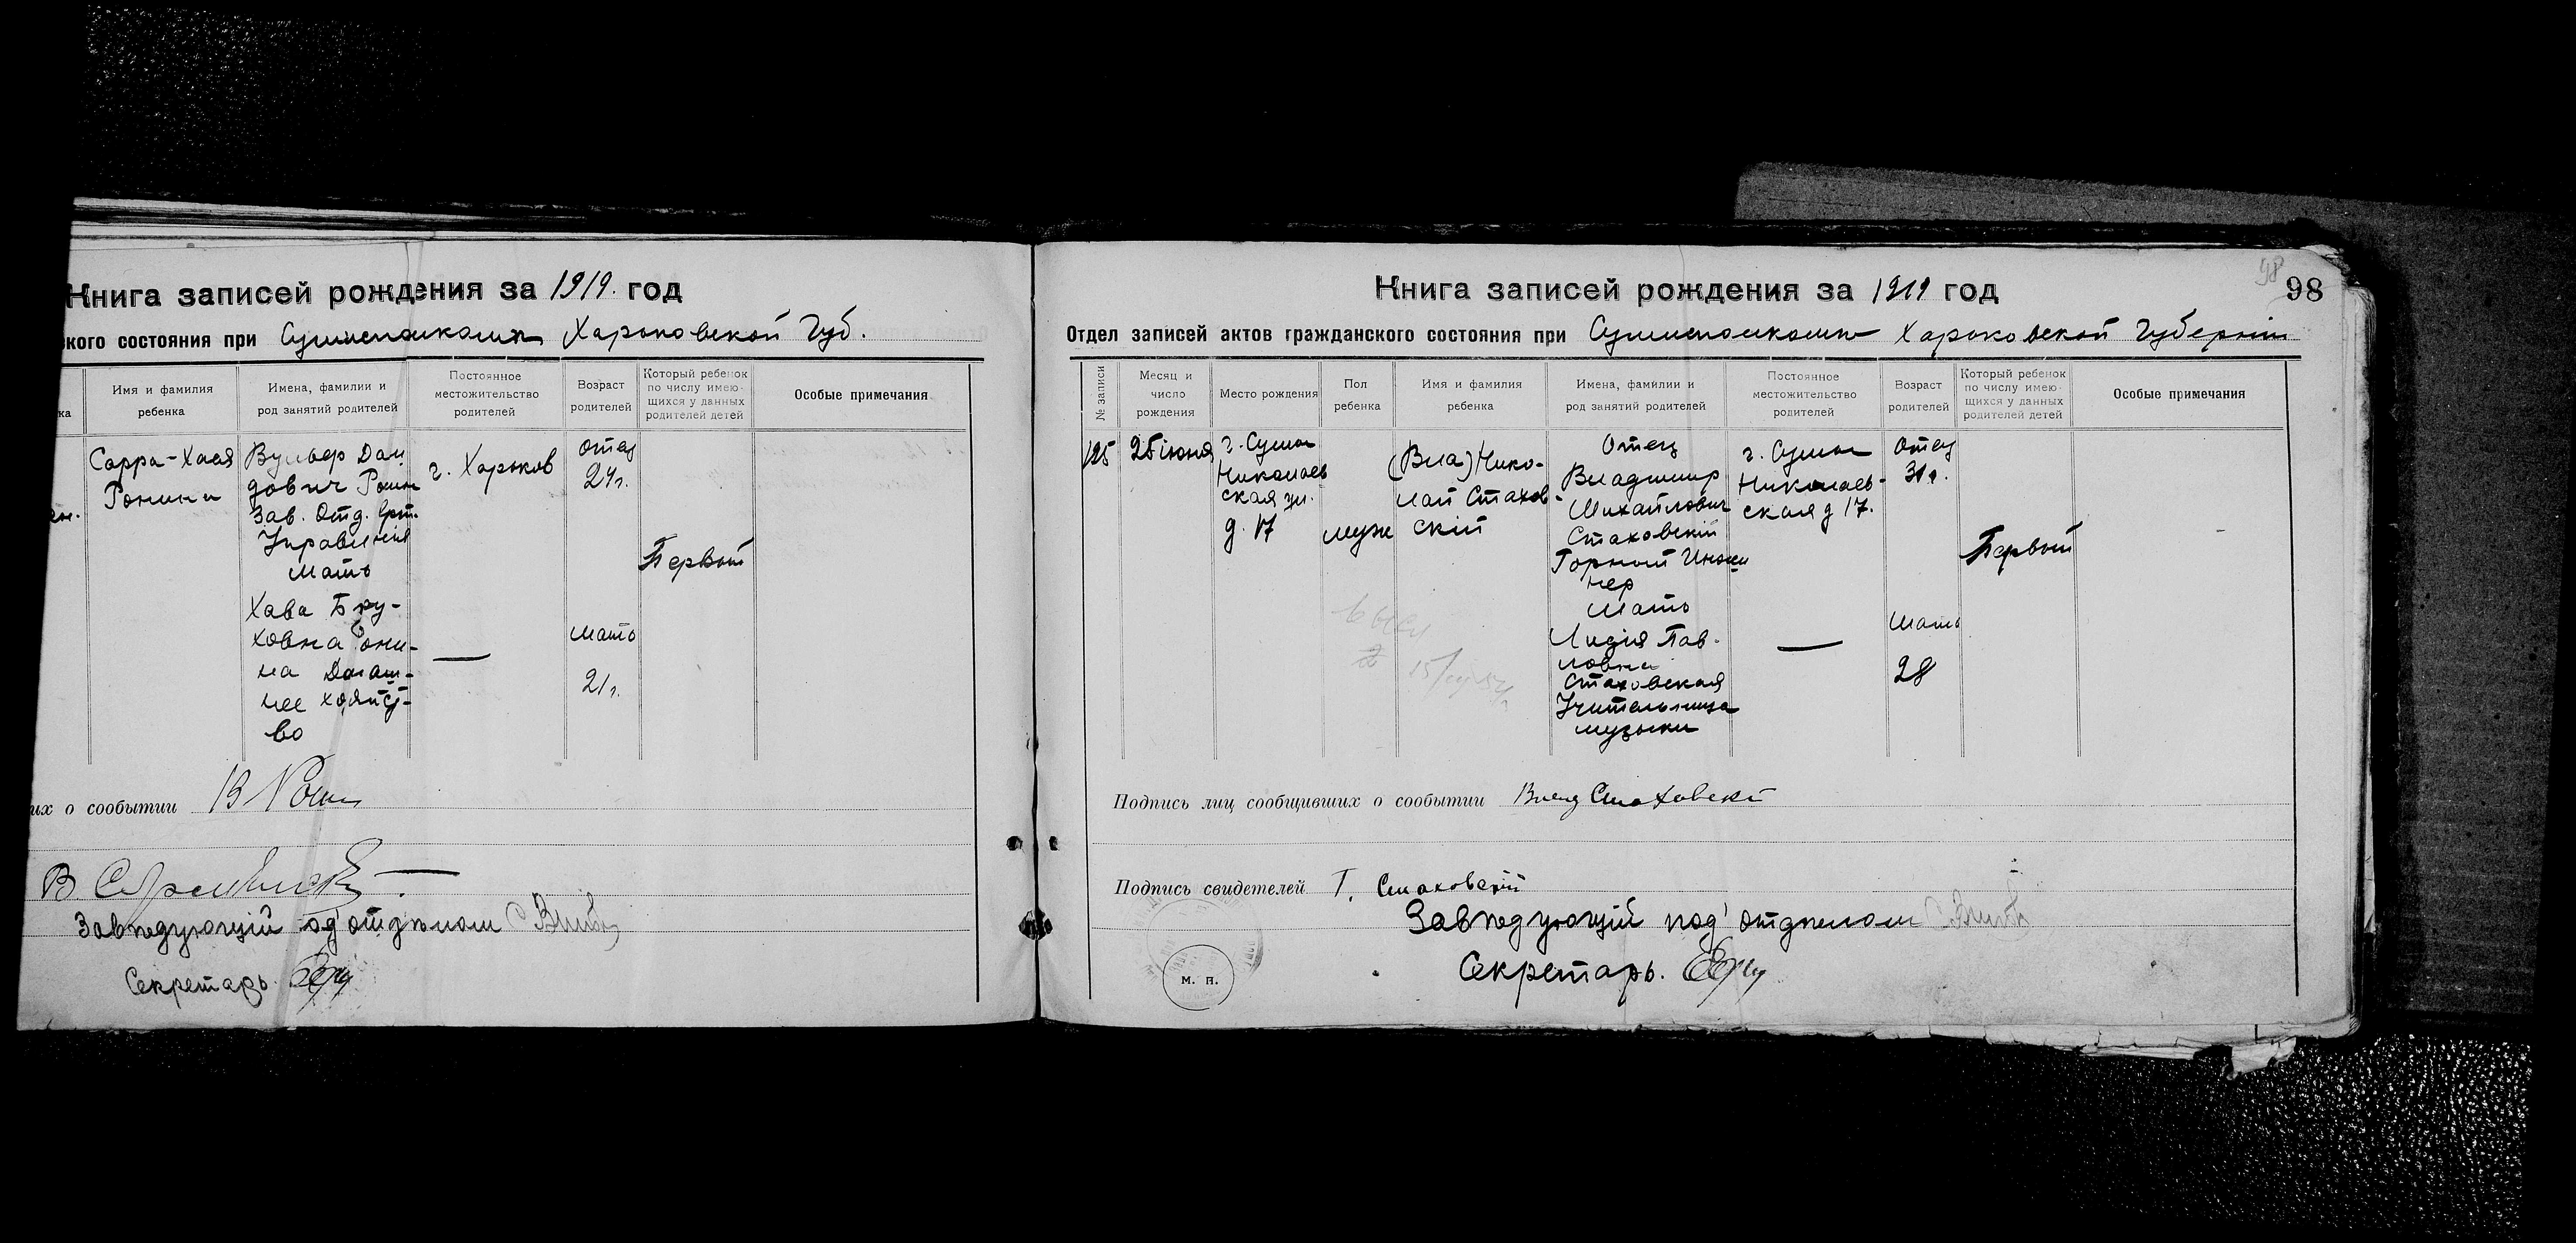 Книга записей рождения за 1919. год
ского состояния при Сумисполкоме Харьковской Губ.
ка
Имя и фамилия
ребенка
Имена, фамилии и
род занятий родителей
Постоянное
местожительство
родителей
Возраст
родителей
Который ребенок
по числу имею-
щихся у данных
родителей детей
Особые примечания
ен.
Сарра-Хая
Ронина
Вульф
дович Ронин
Зав. Отд.
Управления
Мать
Хава Бру-
ховна Рони-
на Домаш-
нее хозяйст-
во
г. Харьков
—
Отец
24 г.
Мать
21 г.
Первый
их о сообытии В Ронин
В.
Заведующій под'отделом
Секретарь.
98
98
Книга записей рождения за 1919 год
Отдел записей актов гражданского состояния при Сумисполкоме Харьковской Губерніи
№ записи
Месяц и
число
рождения
Место рождения
Пол
ребенка
Имя и фамилия
ребенка
Имена, фамилии и
род занятий родителей
Постоянное
местожительство
родителей
Возраст
родителей
Который ребенок
по числу имею-
щихся у данных
родителей детей
Особые примечания
125
25 іюня
г. Сумы
Николаев
ская ул.
д. 17
муж
(Вла) Нико-
лай Стахов-
скій
Отец
Владимир
Михайлович
Стаховскій
Горный Инже
нер
Мать
Лидія Пав-
ловна
Стаховская
Учительница
музыки
г. Сумы
Николаев-
ская д 17.
—
Отец
31 г.
Мать
28
Первый
Подпись лиц сообщивших о сообытии Влад Стаховскій
Подпись свидетелей Г. Стаховскій
Заведующій под'отделом
Секретарь.
М. П.